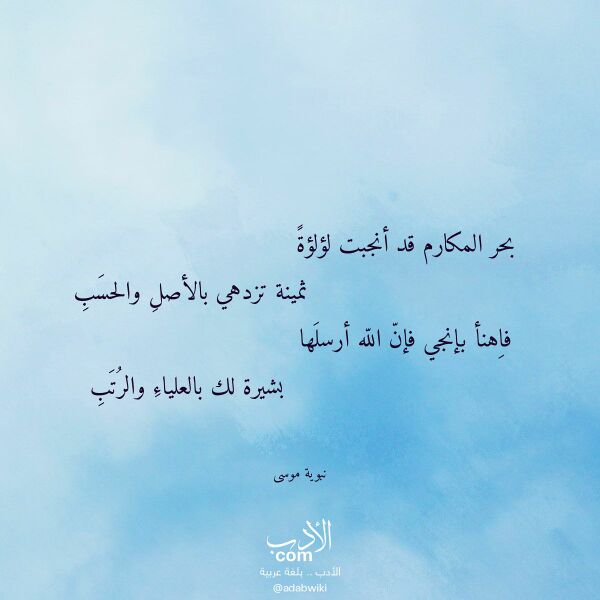 بحر المكارم قد أنجبت لؤلؤةً
ثمينة تزدهي بالأصلِ والحسَبِ
فاِهنأ بإنجي فإنّ الله أرسلَها
بشيرة لك بالعلياءِ والرُتَبِ
نبوية موسى
الأدب
com
الأدب .. بلغة عربية
@adabwiki